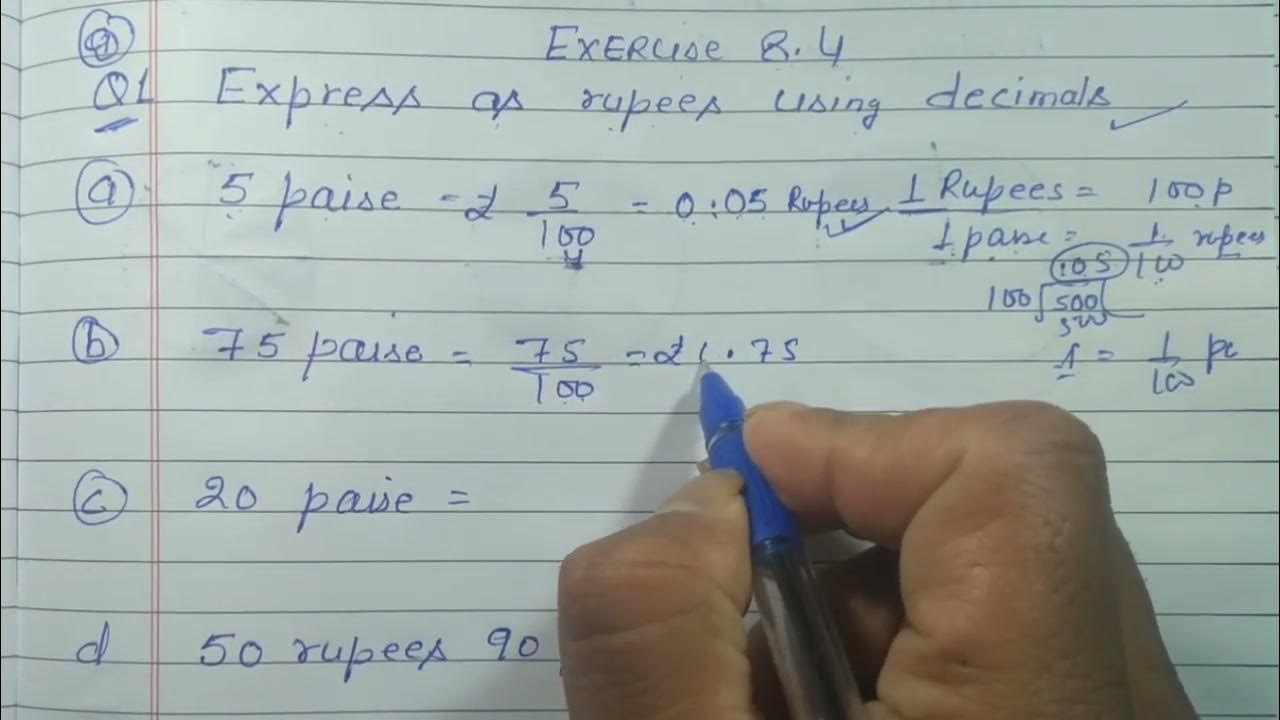 Exercise 8.4
Q1 Express as rupees using decimals
a 5 paise = ₹ 5/100 = 0.05 Rupees
1 Rupees = 100 p
1 paise = 1/100 rupees
.05
100 500
b 75 paise = 75/100 = ₹ .75
1 = 1/100
c 20 paise =
d 50 rupees 90